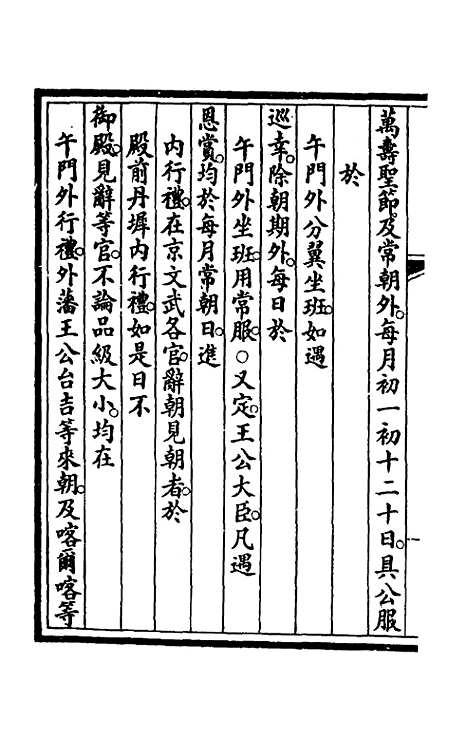 萬壽聖節。及常朝外。每月初一初十二十日。具公服
於
午門外分翼坐班。如遇
巡幸。除朝期外。每日於
午門外坐班。用常服。○又定。王公大臣。凡遇
恩賞。均於每月常朝日。進
內行禮。在京文武各官。辭朝見朝者。於
殿前丹墀內行禮。如是日不
御殿。見辭等官。不論品級大小。均在
午門外行禮。外藩王公台吉等來朝。及喀爾喀等